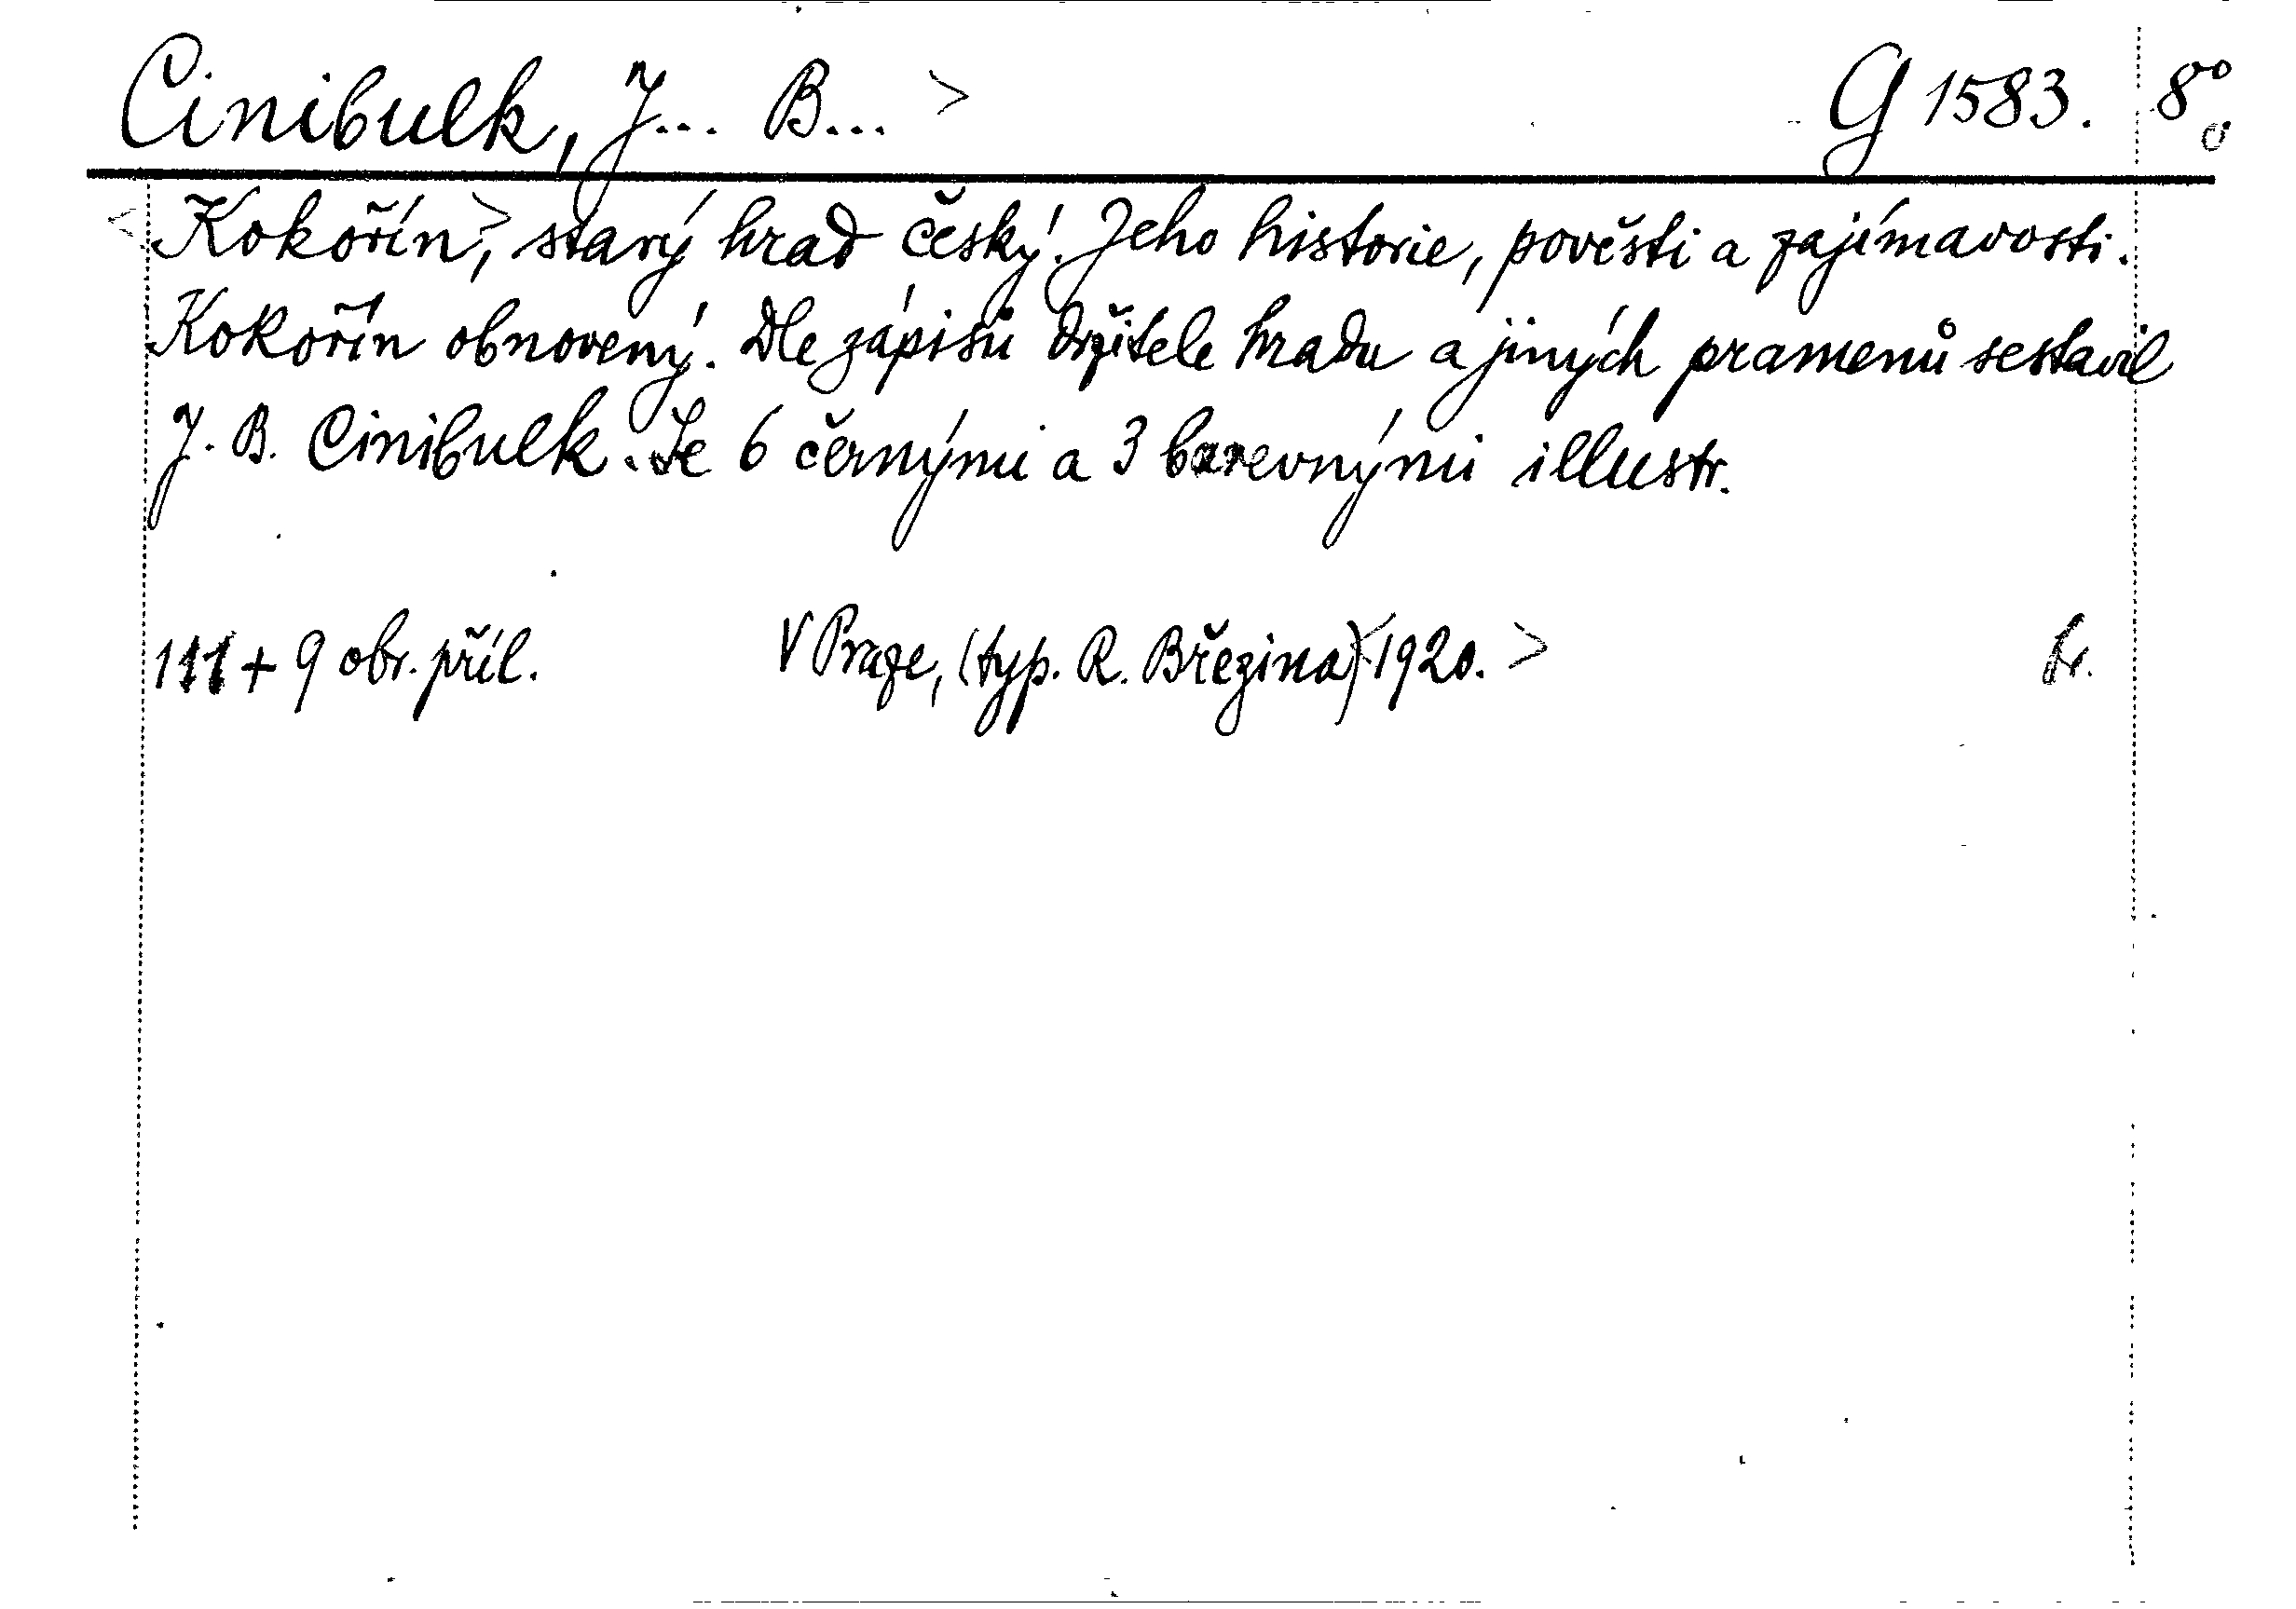 Cinibulk, J... B... > G 1583. 8°
< Kokořín>, starý hrad český. Jeho historie, pověsti a zajímavosti.
Kokořín obnovený. Dle zápisů držitele hradu a jiných pramenů sestavil
J. B. Cinibulk. Se 6 černými a 3 barevnými illustr.
111 + 9 obr. příl. V Praze, (typ. R. Březina) < 1920. >